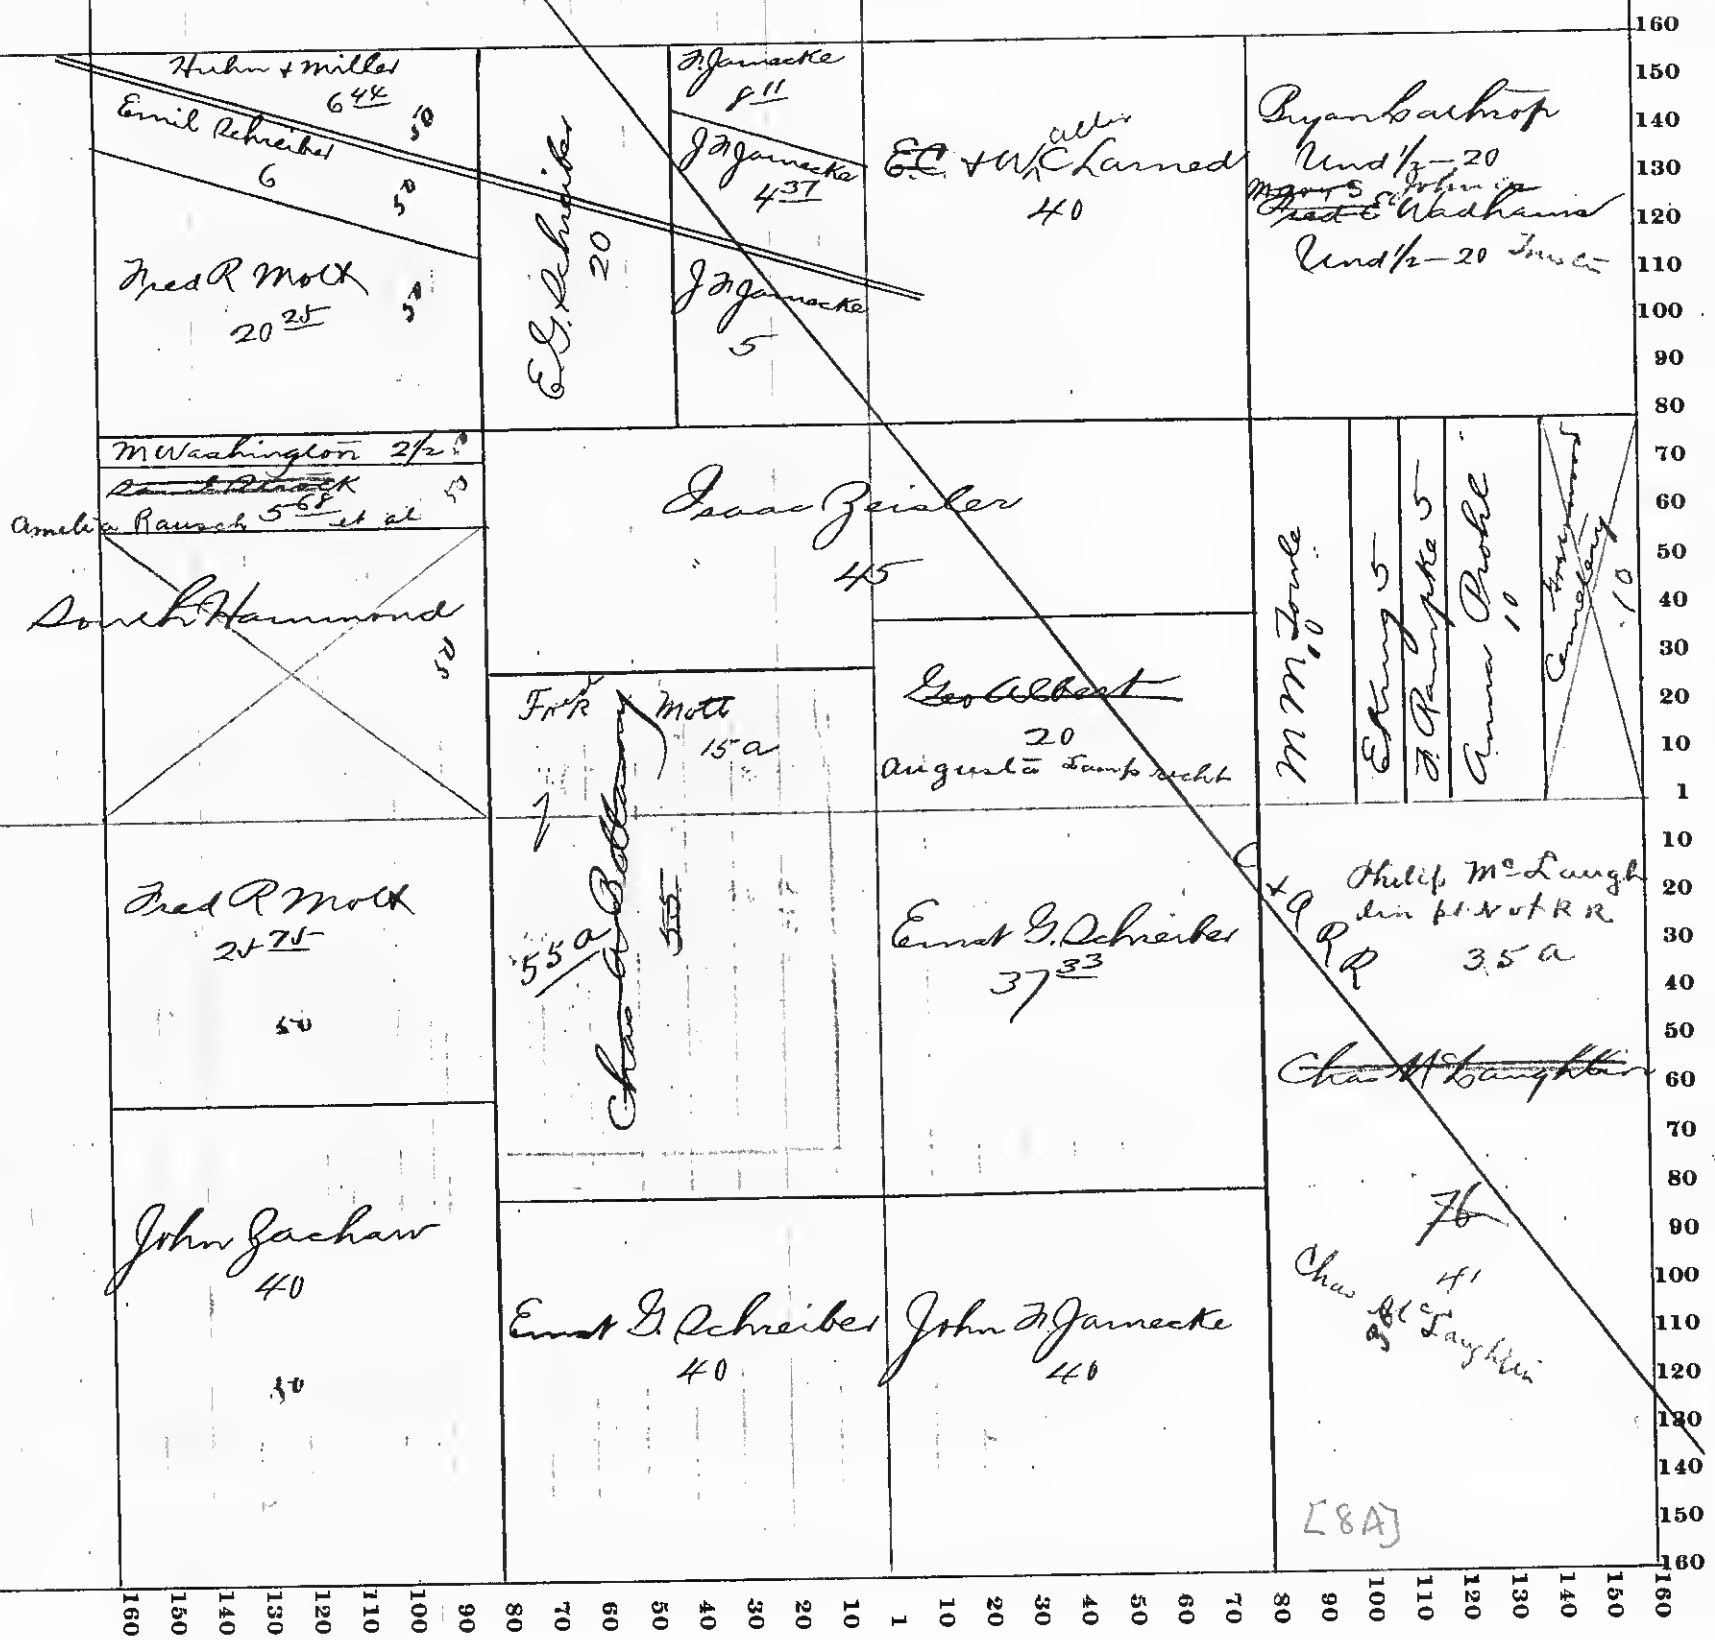 Huhn + Miller
6 44
50
Emil Schreiber
6
50
Fred R Mott
20 25
50
E. G. Schreiber
20
F. Jarnecke
8 11
J F Jarnecke
4 37
J F Jarnecke
5
E.C. + W. C Larned
40
Bryan Lathrop
Und 1/2 - 20
Mary S
Fred E Wadhams
Und 1/2 - 20
M Washington 2 1/2
50
5 68
50
Amelia Rausch et al
South Hammond
50
Isaac Zeisler
45
E King 5
F. Rampke 5
Anna Prohl
10
Cemetery
10
Fred R Mott
15 a
Chas A Bellamy
55
55 a
Geo Albert
20
Augusta Lamprecht
Fred R Mott
25 75
50
Ernst G. Schreiber
37 33
C + A R R
Philip McLaugh
lin pt N of R R
35 a
Chas McLaughlin
76
41
Chas McLaughlin
John Zachaw
40
50
Ernst G. Schreiber
40
John F. Jarnecke
40
[8A]
160
150
140
130
120
110
100
90
80
70
60
50
40
30
20
10
1
10
20
30
40
50
60
70
80
90
100
110
120
130
140
150
160
160 150 140 130 120 110 100 90 80 70 60 50 40 30 20 10 1 10 20 30 40 50 60 70 80 90 100 110 120 130 140 150 160